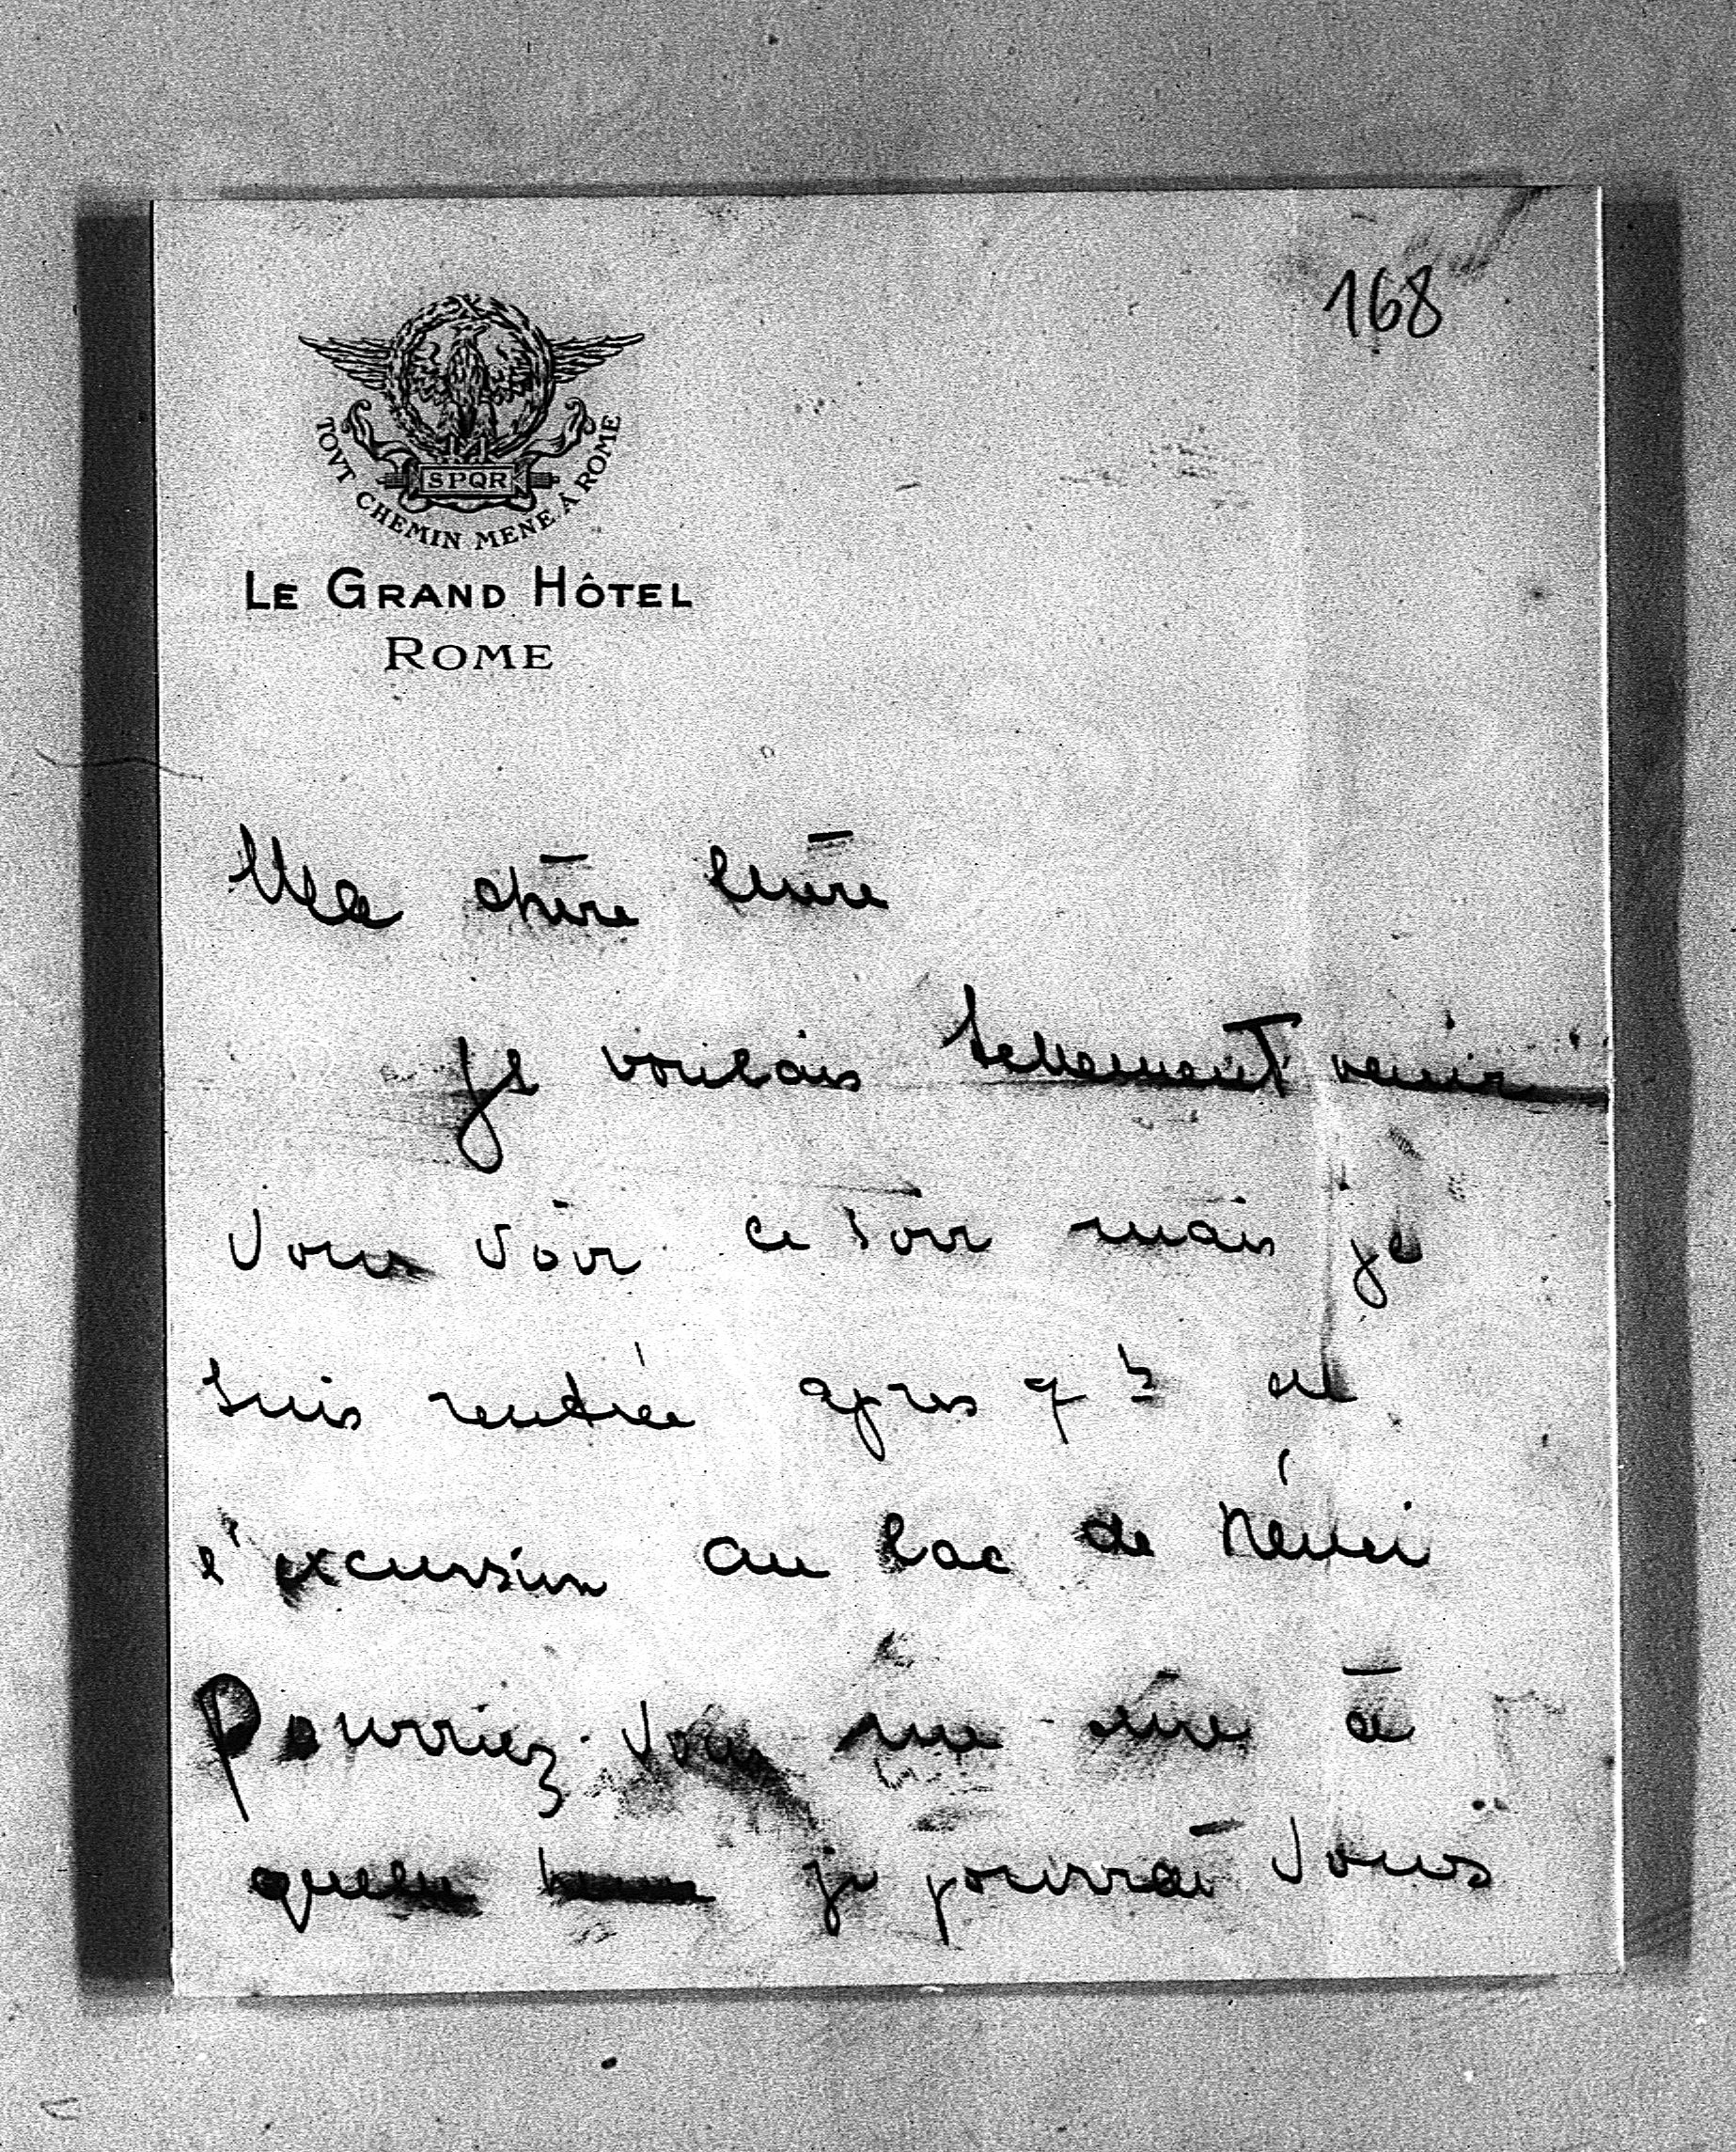 168
TOVT CHEMIN MENE À ROME
SPQR
LE GRAND HÔTEL
ROME
Ma chère
Je voulais tellement venir
vous voir ce soir mais je
suis rentrée après 7 h de
l'excursion au lac de Némi
Pourriez-vous me dire à
quelle heure je pourrai vous